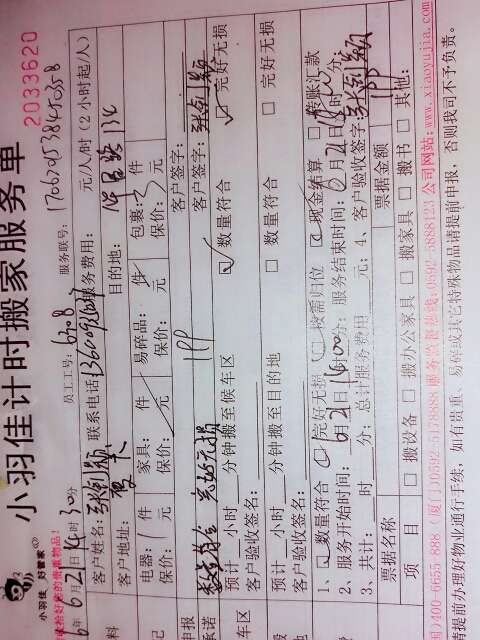 小羽佳计时搬家服务单
2033620
小羽佳 好管家
员工工号: 6708 服务联号: 17062053845035-8
6月21日14时30分
元/人/时(2小时起/人)
客户姓名: 张剑颖 联系电话 服务费用:
客户地址: 厦大 目的地:
电器: 件 家具: 件 易碎品: 件 包裹: 件
保价: 元 保价: 元 保价: 元 保价: 元
申报 客户签字:
承诺 数量符合 完好无损 客户签字: 张剑颖
预计 小时 分钟搬至候车区 ☑数量符合 ☑完好无损
客户验收签名:
预计 小时 分钟搬至目的地 □数量符合 □完好无损
客户验收签名:
1、□数量符合 □完好无损 □按需归位 现金结算 □转账汇款
2、服务开始时间: 6月21日 分; 服务结束时间: 6月21日 时 分;
3、共计: 时 分; 总计服务费用 元; 4、客户验收签字: 张剑颖
票据名称 票据金额
项 目 □搬设备 □搬办公家具 □搬家具 □搬书 □其他:
400-6655-888 (厦门)0592-5178888 服务监督热线:0592-5888123 公司网站:www.xiaoyujia.com
请提前办理好物业通行手续,如有贵重、易碎或其它特殊物品请提前申报,否则我司不予负责。